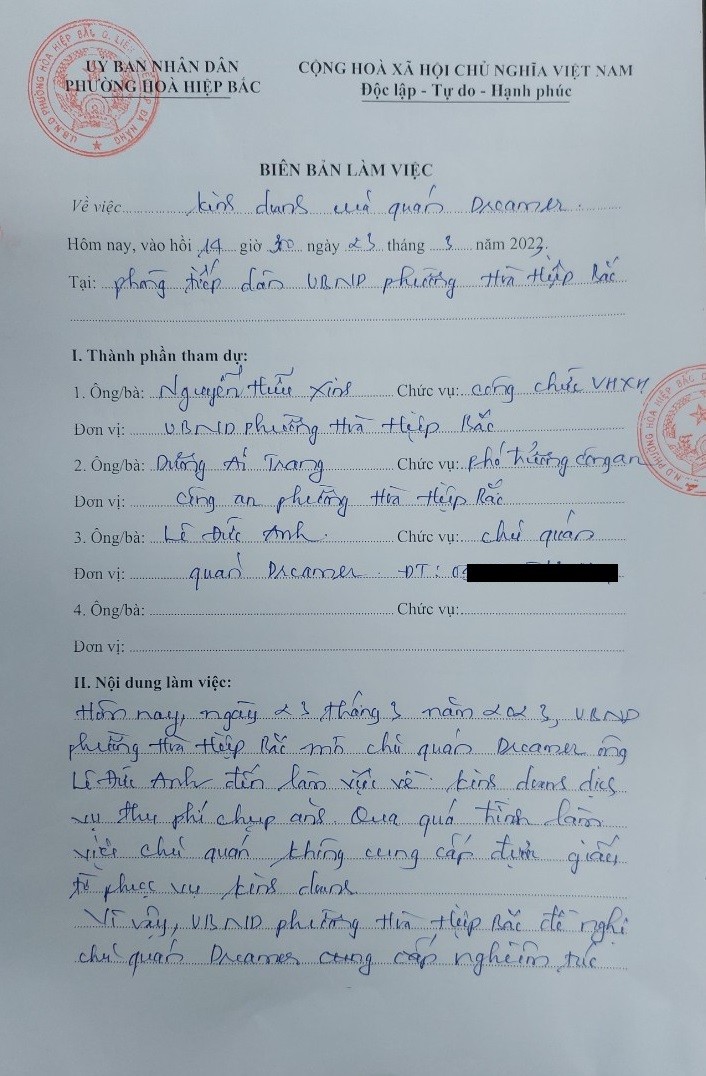 ỦY BAN NHÂN DÂN
PHƯỜNG HOÀ HIỆP BẮC
CỘNG HOÀ XÃ HỘI CHỦ NGHĨA VIỆT NAM
Độc lập - Tự do - Hạnh phúc
BIÊN BẢN LÀM VIỆC
Về việc kinh doanh của quán Dreamer.
Hôm nay, vào hồi 14 giờ 30 ngày 23 tháng 3 năm 2023.
Tại: phòng tiếp dân UBND phường Hoà Hiệp Bắc
I. Thành phần tham dự:
1. Ông/bà: Nguyễn Hữu Xinh Chức vụ: công chức VHXH
Đơn vị: UBND phường Hoà Hiệp Bắc
2. Ông/bà: Dương Ái Trang Chức vụ: phó trưởng công an
Đơn vị: công an phường Hoà Hiệp Bắc
3. Ông/bà: Lê Đức Anh. Chức vụ: chủ quán
Đơn vị: quán Dreamer. ĐT: 0
4. Ông/bà: Chức vụ:
Đơn vị:
II. Nội dung làm việc:
Hôm nay, ngày 23 tháng 3 năm 2023, UBND
phường Hoà Hiệp Bắc mời chủ quán Dreamer ông
Lê Đức Anh đến làm việc về kinh doanh dịch
vụ thu phí chụp ảnh Qua quá trình làm
việc chủ quán không cung cấp được giấy
tờ phục vụ kinh doanh
Vì vậy, UBND phường Hoà Hiệp Bắc đề nghị
chủ quán Dreamer cung cấp nghiêm túc